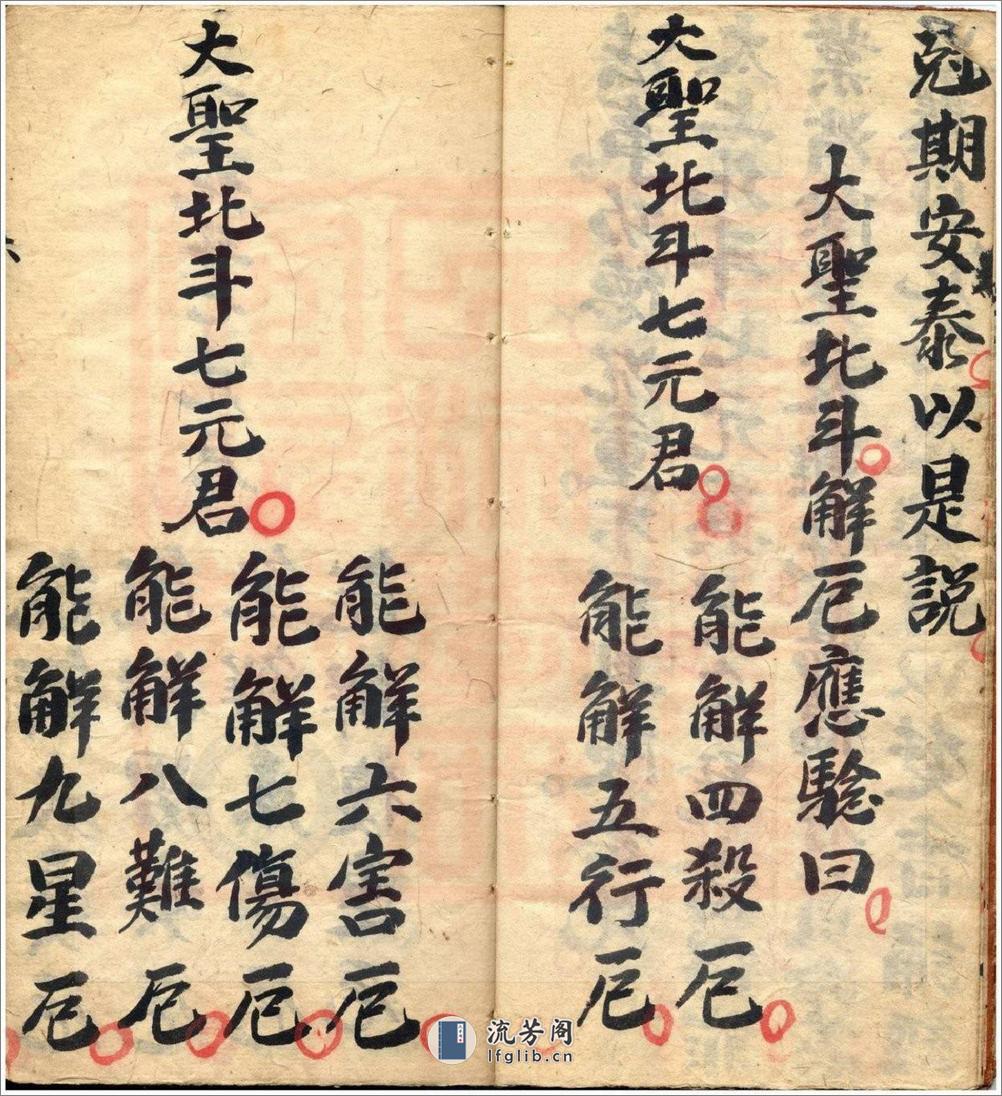 尅期安泰以是説
大聖北斗解厄應驗曰
大聖北斗七元君
能解四殺厄
能解五行厄
能解六害厄
大聖北斗七元君
能解七傷厄
能解八難厄
能解九星厄
流芳阁
lfglib.cn